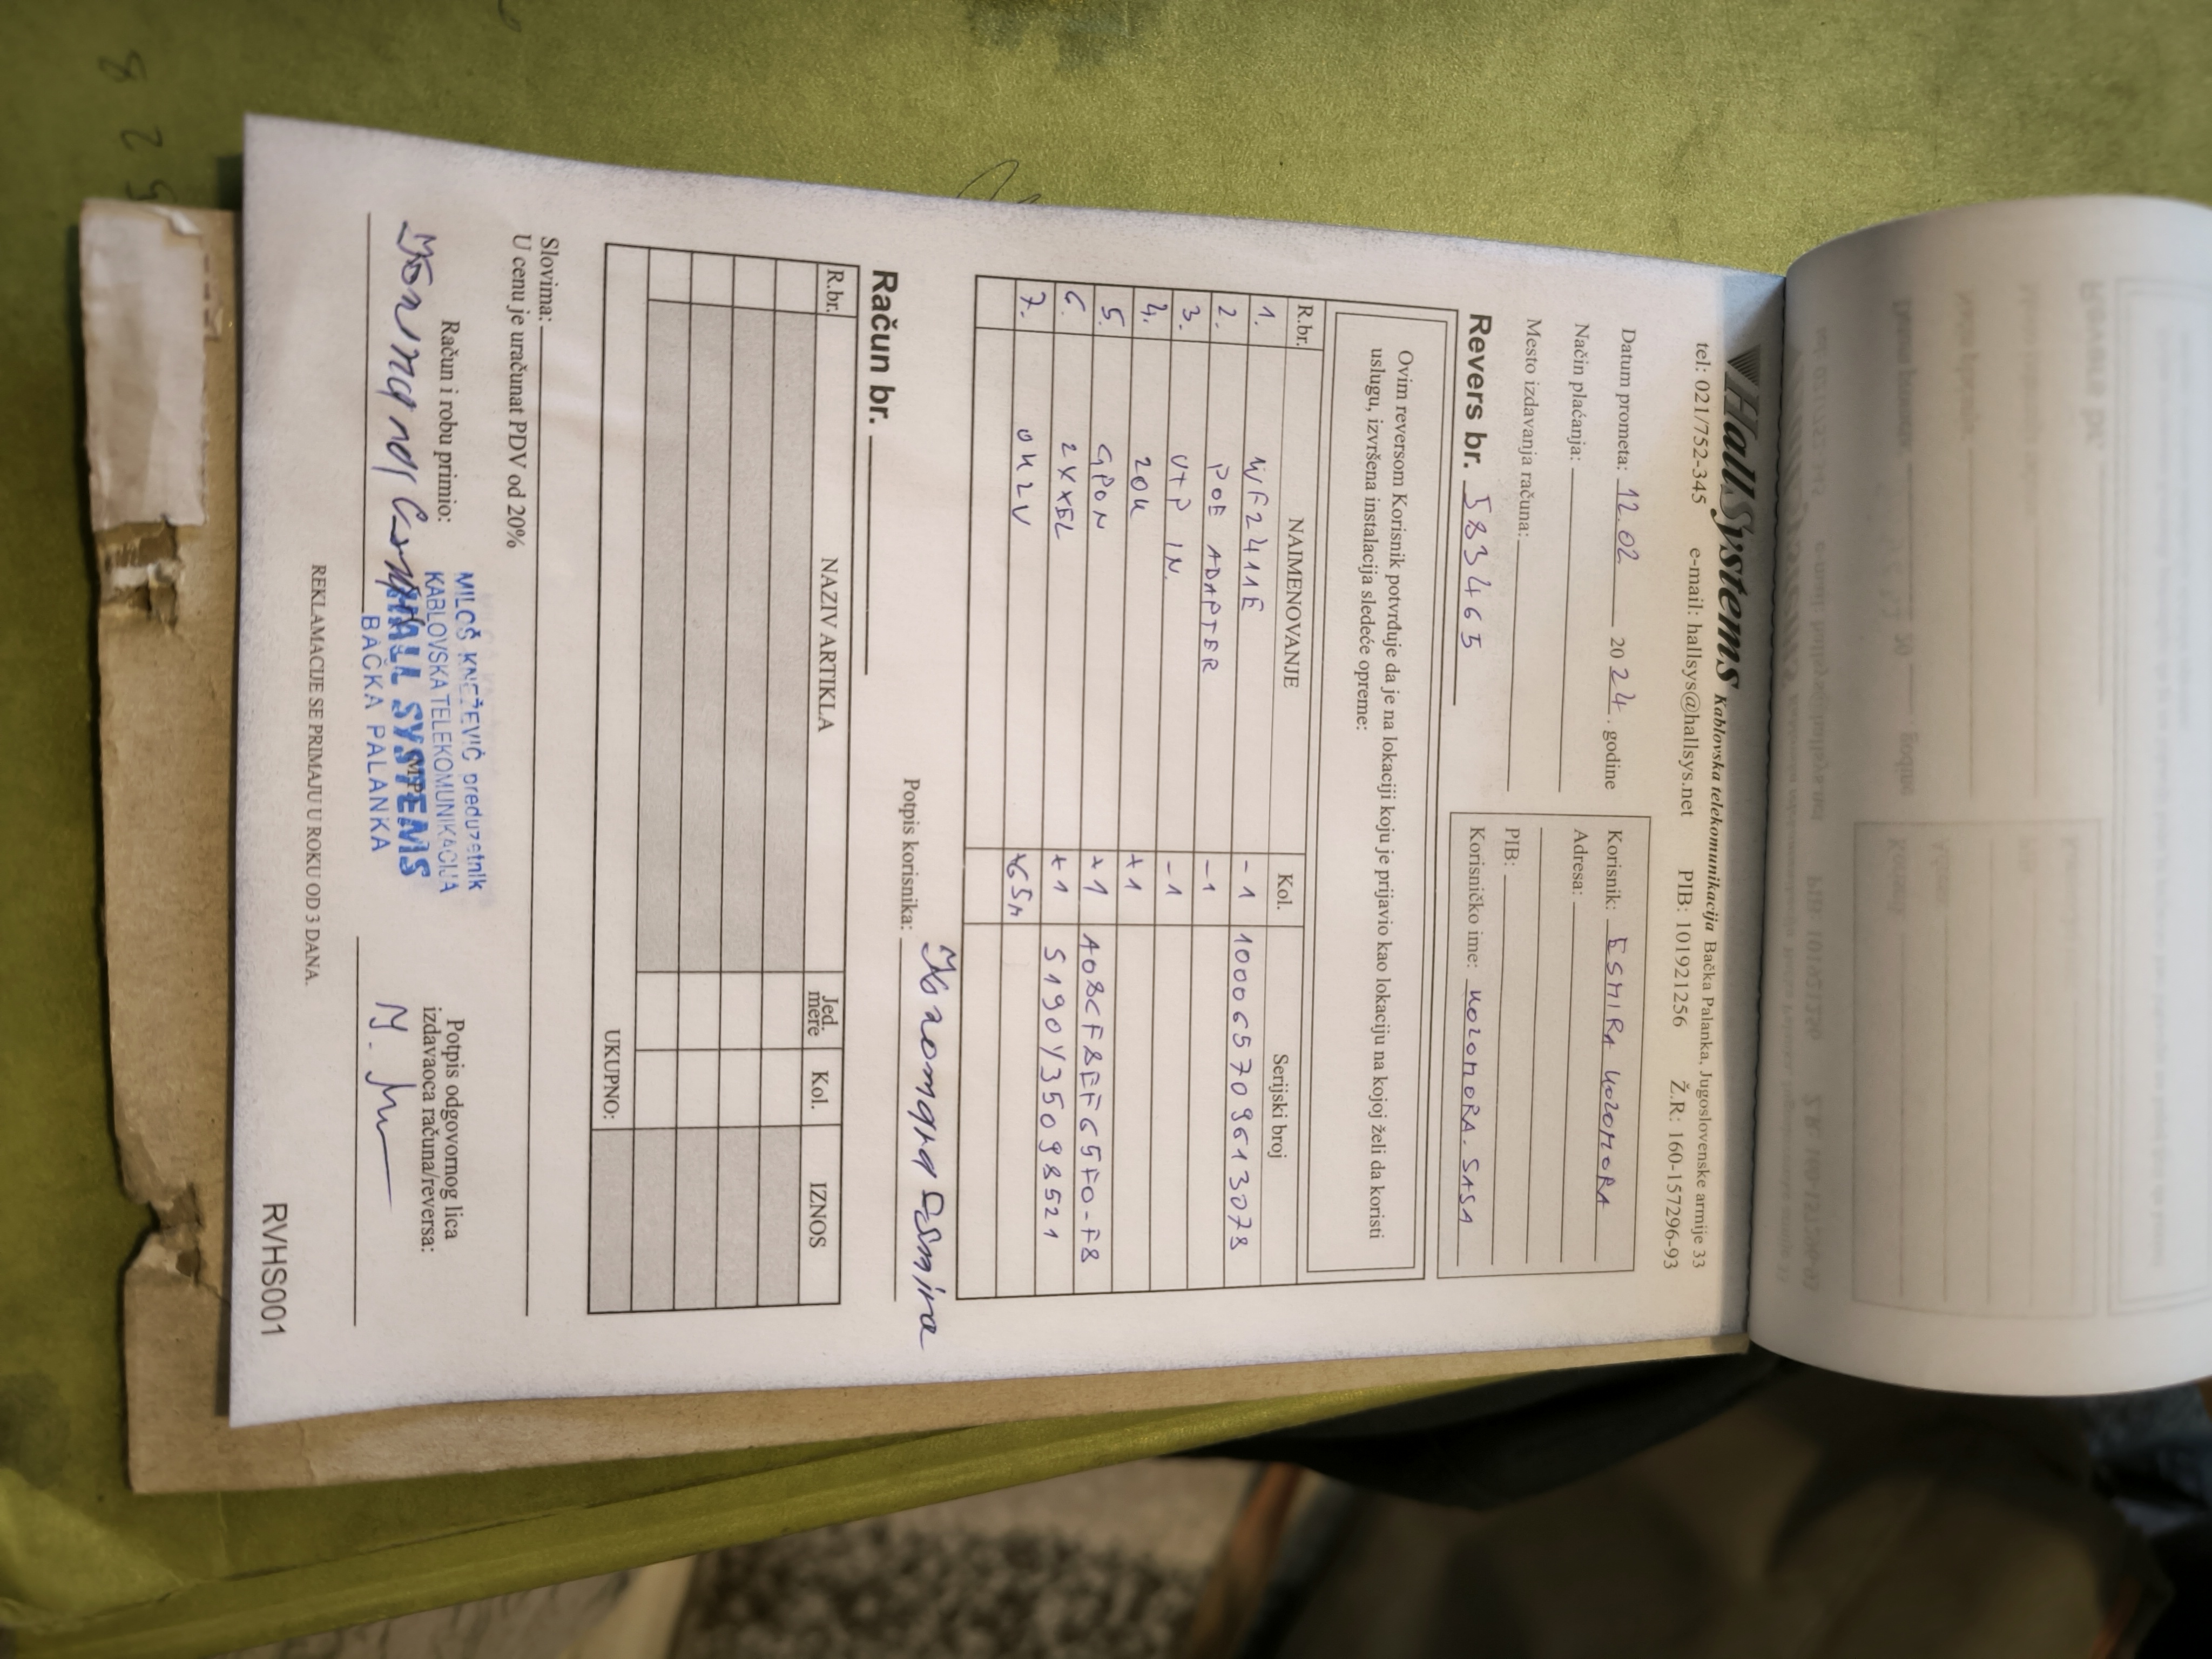 HallSystems Kablovska telekomunikacija Bačka Palanka, Jugoslovenske armije 33
tel: 021/752-345 e-mail: hallsys@hallsys.net PIB: 101921256 Ž.R: 160-157296-93
Datum prometa: 12.02 2024. godine
Način plaćanja:
Mesto izdavanja računa:
Korisnik: ESMIRA KOZOMORA
Adresa:
PIB:
Korisničko ime: KOZOMORA.SASA
Revers br. 583465
Ovim reversom Korisnik potvrđuje da je na lokaciji koju je prijavio kao lokaciju na kojoj želi da koristi
uslugu, izvršena instalacija sledeće opreme:
R.br. NAIMENOVANJE Kol. Serijski broj
1. WF2411E -1 100065709613078
2. POE ADAPTER -1
3. UTP IN. -1
4. ZOK +1
5. GPON +1 A08CF8EF65F0-F8
6. ZYXEL +1 S190Y35098521
7. OK2V
Potpis korisnika: Kozomara Esmira
Račun br.
R.br. NAZIV ARTIKLA Jed. mere Kol. IZNOS
UKUPNO:
Slovima:
U cenu je uračunat PDV od 20%
Račun i robu primio:
MILOŠ KNEŽEVIĆ preduzetnik
KABLOVSKA TELEKOMUNIKACIJA
HALL SYSTEMS
BAČKA PALANKA
MP
Potpis odgovornog lica
izdavaoca računa/reversa:
REKLAMACIJE SE PRIMAJU U ROKU OD 3 DANA.
RVHS001